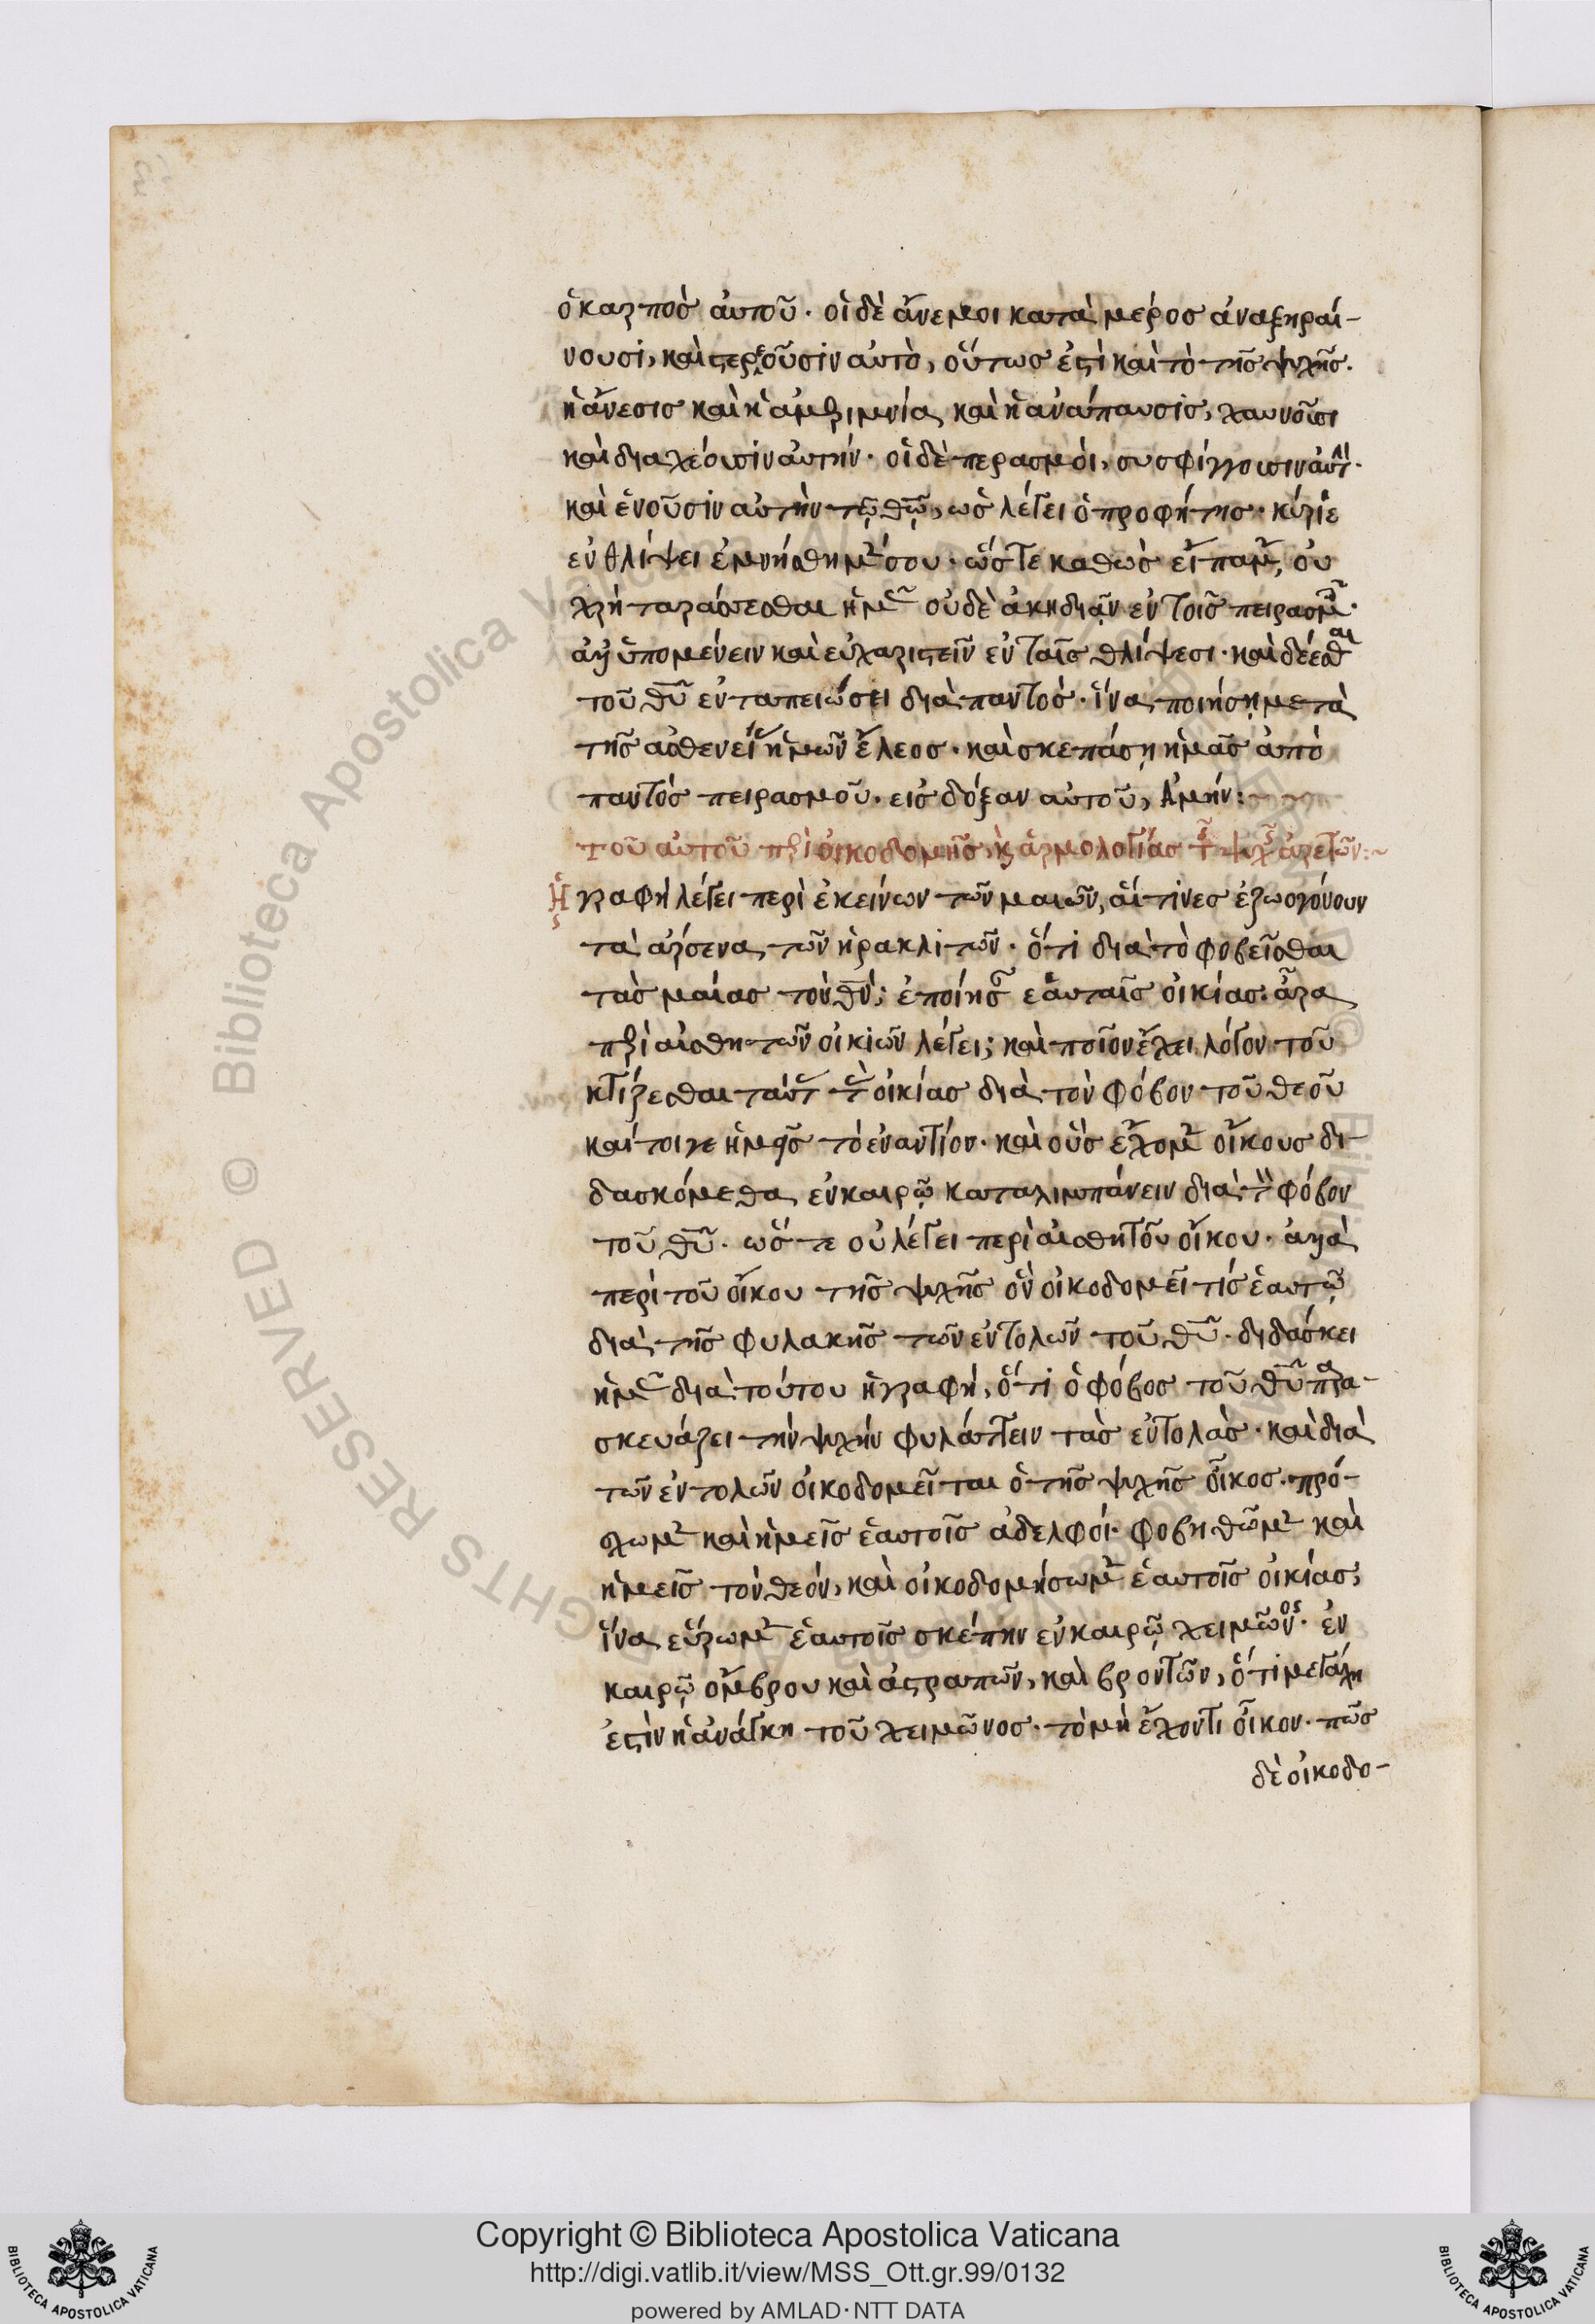 ὁ καρπὸσ αὐτοῦ· οἱ δὲ ἄνεμοι κατὰ μέροσ ἀναξηραί-
νουσι, καὶ στερεοῦσιν αὐτὸ, οὕτωσ ἐστὶ καὶ τὸ τῆσ ψυχῆσ.
ἡ ἄνεσισ καὶ ἡ ἀμεριμνία καὶ ἡ ἀνάπαυσισ, χαυνοῦσι
καὶ διαχέουσιν αὐτήν· οἱ δὲ περασμοὶ, συσφίγγουσιν αὐτὴν.
καὶ ἑνοῦσιν αὐτὴν τῷ θῷ, ὡσ λέγει ὁ προφήτησ· κύριε
ἐν θλίψει ἐμνήσθημέν σου· ὥστε καθὼσ εἴπαμεν, οὐ
χρὴ ταράσσεσθαι ἡμᾶσ οὐδὲ ἀκηδιᾷν ἐν τοῖσ πειρασμοῖσ.
ἀλλ ὑπομένειν καὶ εὐχαριστεῖν ἐν ταῖσ θλίψεσι· καὶ δέεσθαι
τοῦ θῦ ἐν ταπεινώσει διὰ παντόσ· ἵνα ποιήσῃ μετὰ
τῆσ ἀσθενείασ ἡμῶν ἔλεοσ· καὶ σκεπάσῃ ἡμᾶσ ἀπὸ
παντόσ πειρασμοῦ· εἰσ δόξαν αὐτοῦ, Ἀμήν:
τοῦ αὐτοῦ περὶ οἰκοδομῆσ, κ ἁρμολογίασ τῶν τῆσ ψυχῆσ ἀρετῶν:~
Ἡ γραφὴ λέγει περὶ ἐκείνων τῶν μαιῶν, αἵτινεσ ἐζωογόνουν
τὰ ἄρσενα τῶν ἠρακλιτῶν· ὅτι διὰ τὸ φοβεῖσθαι
τὰσ μαίασ τὸν θν, ἐποίησαν ἑαυταῖσ οἰκίασ· ἆρα
περὶ αἰσθητῶν οἰκιῶν λέγει; καὶ ποῖον ἔχει λόγον τοῦ
κτίζεσθαι ταύτασ τὰσ οἰκίασ διὰ τὸν φόβον τοῦ θεοῦ
καίτοιγε ἡμεῖσ τὸ ἐναντίον· καὶ οὓσ ἔχομεν οἴκουσ δι-
δασκόμεθα ἐν καιρῷ καταλιμπάνειν διὰ τὸν φόβον
τοῦ θῦ· ὥστε οὐ λέγει περὶ αἰσθητοῦ οἴκου· ἀλλὰ
περὶ τοῦ οἴκου τῆσ ψυχῆσ ὃν οἰκοδομεῖ τίσ ἑαυτῷ
διὰ τῆσ φυλακῆσ τῶν ἐντολῶν τοῦ θῦ· διδάσκει
ἡμᾶσ διὰ τούτου ἡ γραφὴ, ὅτι ὁ φόβοσ τοῦ θῦ παρα-
σκευάζει τὴν ψυχὴν φυλάττειν τὰσ ἐντολὰσ· καὶ διὰ
τῶν ἐντολῶν οἰκοδομεῖται ὁ τῆσ ψυχῆσ οἶκοσ· πρό-
σχωμεν καὶ ἡμεῖσ ἑαυτοῖσ ἀδελφοί· φοβηθῶμεν καὶ
ἡμεῖσ τὸν θεόν, καὶ οἰκοδομήσωμεν ἑαυτοῖσ οἰκίασ,
ἵνα εὕρωμεν ἑαυτοῖσ σκέπην ἐν καιρῷ χειμῶνοσ· ἐν
καιρῷ ὄμβρου καὶ ἀστραπῶν, καὶ βροντῶν, ὅτι μεγάλη
ἐστὶν ἡ ἀνάγκη τοῦ χειμῶνοσ· τὸ μὴ ἔχοντι οἶκον· πῶσ
δὲ οἰκοδο-
Copyright © Biblioteca Apostolica Vaticana
http://digi.vatlib.it/view/MSS_Ott.gr.99/0132
powered by AMLAD·NTT DATA